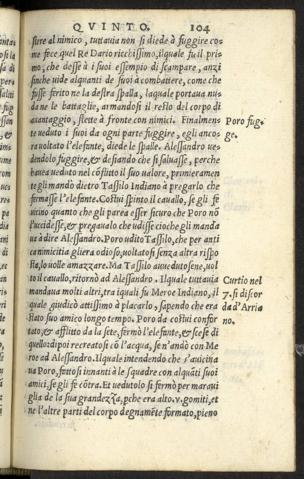 QVINTO. 104
stere al nimico, tuttauia non si diede à fuggire co-
me fece quel Re Dario ricchissimo, ilquale fu il pri-
mo, che desse à i suoi essempio di scampare, anzi
finche uide alquanti de suoi à combattere, come che
fusse ferito ne la destra spalla, laquale portaua nu-
da ne le battaglie, armandosi il resto del corpo di
auantaggio, stette à fronte con nimici. Finalmen-
te ueduto i suoi da ogni parte fuggire, egli anco-
ra uoltato l'elefante, diede le spalle. Alessandro ue-
dendolo fuggire, & desiando che si saluasse, perche
haueа ueduto nel cõflitto il suo ualore, primieramen
te gli mandò dietro Tassilo Indiano à pregarlo che
fermasse l'elefante. Costui spinto il cauallo, se gli fe
uicino quanto che gli parea esser sicuro che Poro nõ
l'uccidesse, & pregaualo che udisse cioche gli manda
ua à dire Alessandro. Poro udito Tassilo, che per anti
ca nimicitia gliera odioso, uoltatosi senza altra rispo
sta, lo uolle amazzare. Ma Tassilo auuedutosene, uol
to il cauallo, ritornò ad Alessandro. Ilquale tuttauia
mandaua molti altri, tra iquali fu Meroe Indiano, il
quale giudicò attissimo à placarlo, sapendo che era
stato suo amico longo tempo. Poro da costui confor
tato, & afflitto da la sete, fermò l'elefante, & scese di
quello: dipoi recreatosi cõ l'acqua, se n'andò con Me
roe ad Alessandro. Ilquale intendendo che s'auicina
ua Poro, fattosi innanti à le squadre con alquãti suoi
amici, se gli fe cõtra. Et uedutolo si fermò per maraui
glia de la sua grandezza, pche era alto. v. gomiti, et
ne l'altre parti del corpo degnamẽte formato, pieno
Poro fug-
ge.
Curtio nel
7. si discor
da d'Arria
no.